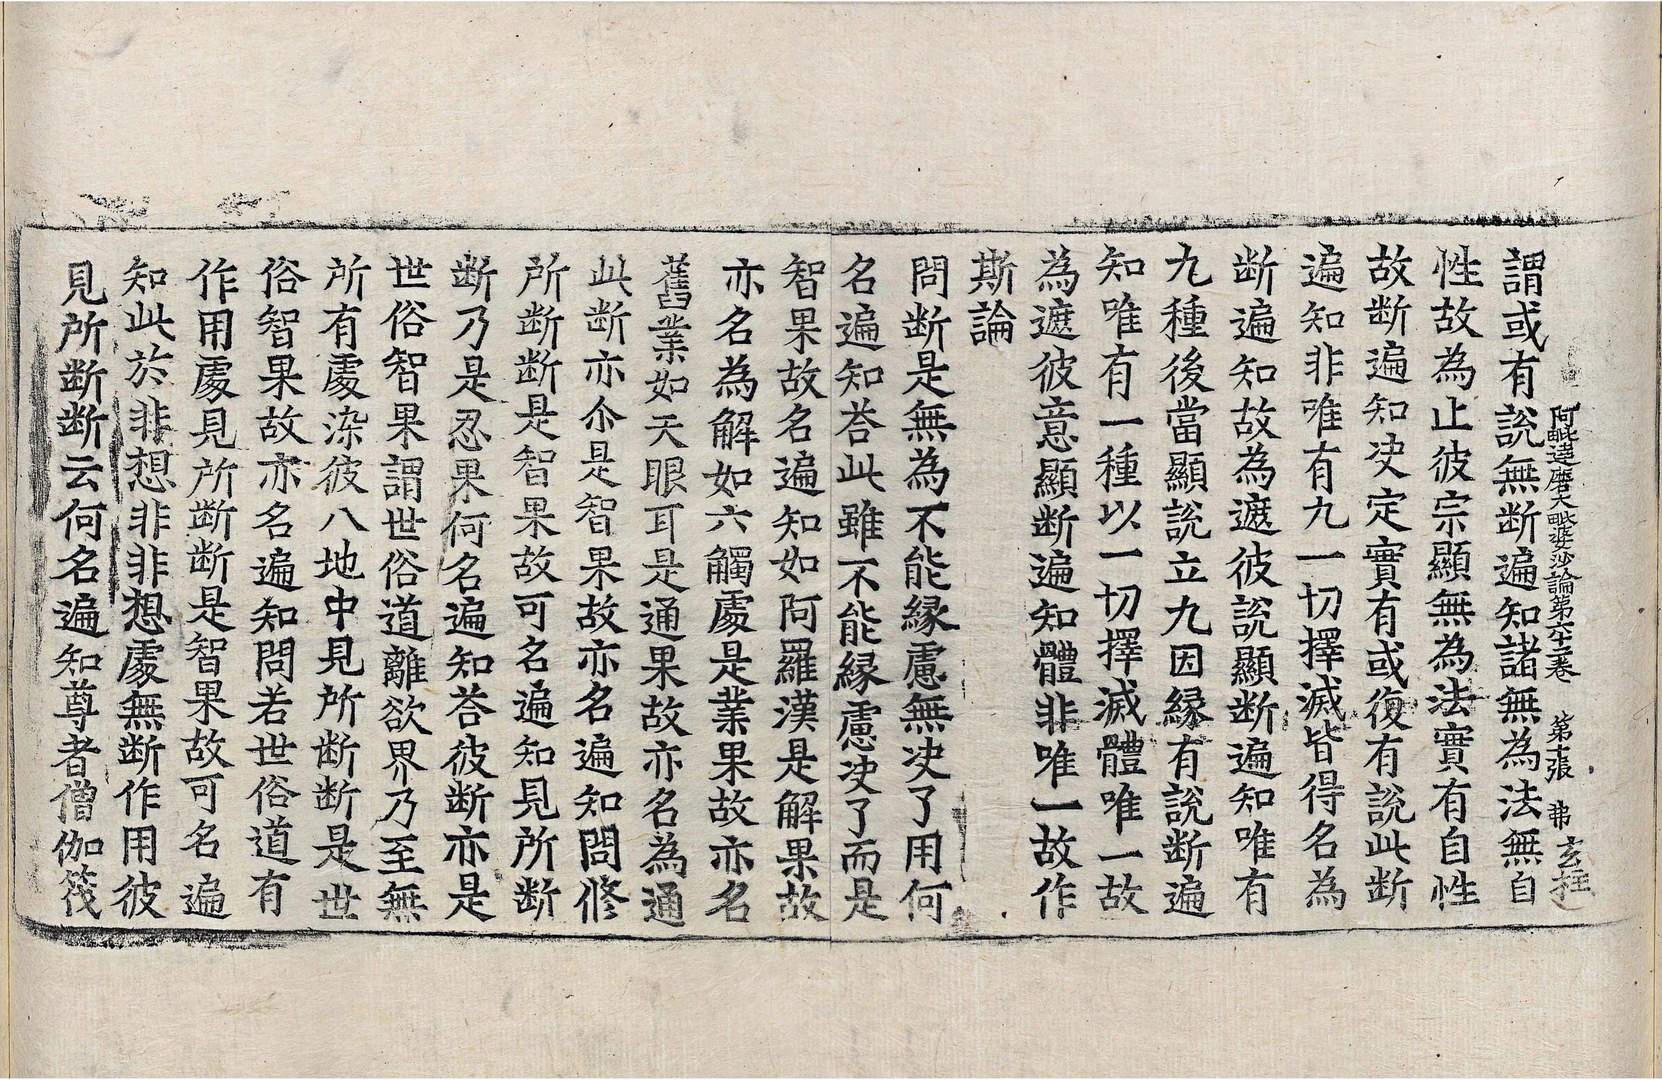 阿毗達磨大毗婆沙論第六十二卷 第十張 弗 玄抂
謂或有說無斷遍知諸無為法無自
性故為止彼宗顯無為法實有自性
故断遍知决定實有或復有說此断
遍知非唯有九一切擇滅皆得名為
断遍知故為遮彼說顯断遍知唯有
九種後當顯說立九因縁有說断遍
知唯有一種以一切擇滅體唯一故
為遮彼意顯断遍知體非唯一故作
斯論
問断是無為不能縁慮無决了用何
名遍知荅此雖不能縁慮决了而是
智果故名遍知如阿羅漢是解果故
亦名為解如六觸處是業果故亦名
舊業如天眼耳是通果故亦名為通
此断亦尒是智果故亦名遍知問修
所断断是智果故可名遍知見所断
断乃是忍果何名遍知荅彼断亦是
世俗智果謂世俗道離欲界乃至無
所有處染彼八地中見所断断是世
俗智果故亦名遍知問若世俗道有
作用處見所断断是智果故可名遍
知此於非想非非想處無断作用彼
見所断断云何名遍知尊者僧伽筏